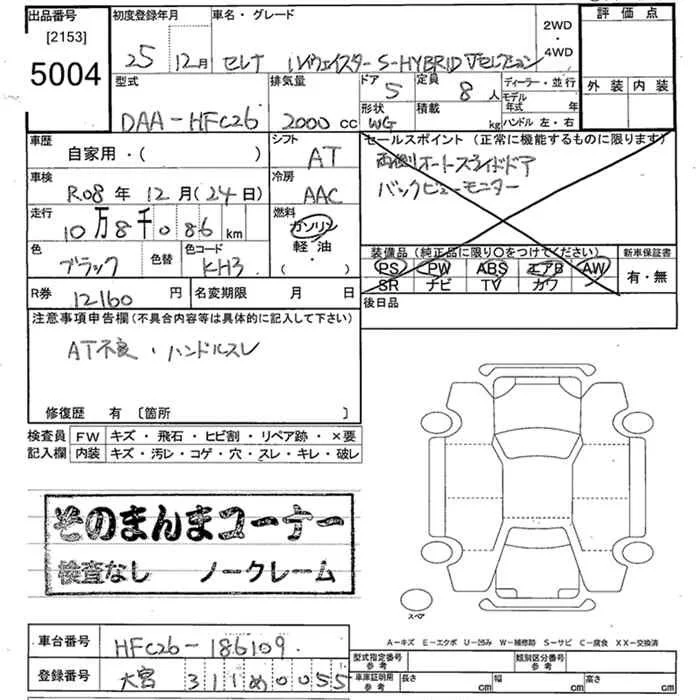 出品番号 初度登録年月 車名・グレード 2WD・4WD 評価点
[2153]
5004 25年 12月 セレナ ハイウェイスター S-HYBRID Vセレクション
型式 排気量 ドア 定員 ディーラー・並行 外装 内装
DAA-HFC26 2000cc 5 8人 モデル年式 年
形状 積載 ハンドル 左・右
WG kg
車歴 自家用・( ) シフト AT セールスポイント(正常に機能するものに限ります)
両側オートスライドドア
バックビューモニター
車検 R.08年 12月(24日) 冷房 AAC
走行 10万8千086km 燃料 ガソリン・軽油・( )
色 ブラック 色替 色コード KH3
装備品(純正品に限り○をつけてください) 新車保証書
PS PW ABS エアB AW 有・無
SR ナビ TV カワ
R券 12160円 名変期限 月 日 後日品
注意事項申告欄(不具合内容等は具体的に記入して下さい)
AT不良・ハンドルスレ
修復歴 有 〔箇所 〕
検査員 FW キズ・飛石・ヒビ割・リペア跡・×要
記入欄 内装 キズ・汚レ・コゲ・穴・スレ・キレ・破レ
そのまんまコーナー
検査なし ノークレーム
スペア
A-キズ E-エクボ U-凹み W-補修跡 S-サビ C-腐食 XX-交換済
車台番号 HFC26-186109
型式指定番号 参考 類別区分番号 参考
登録番号 大宮 311 め 0055
車庫証明用 参考 長さ cm 幅 cm 高さ cm